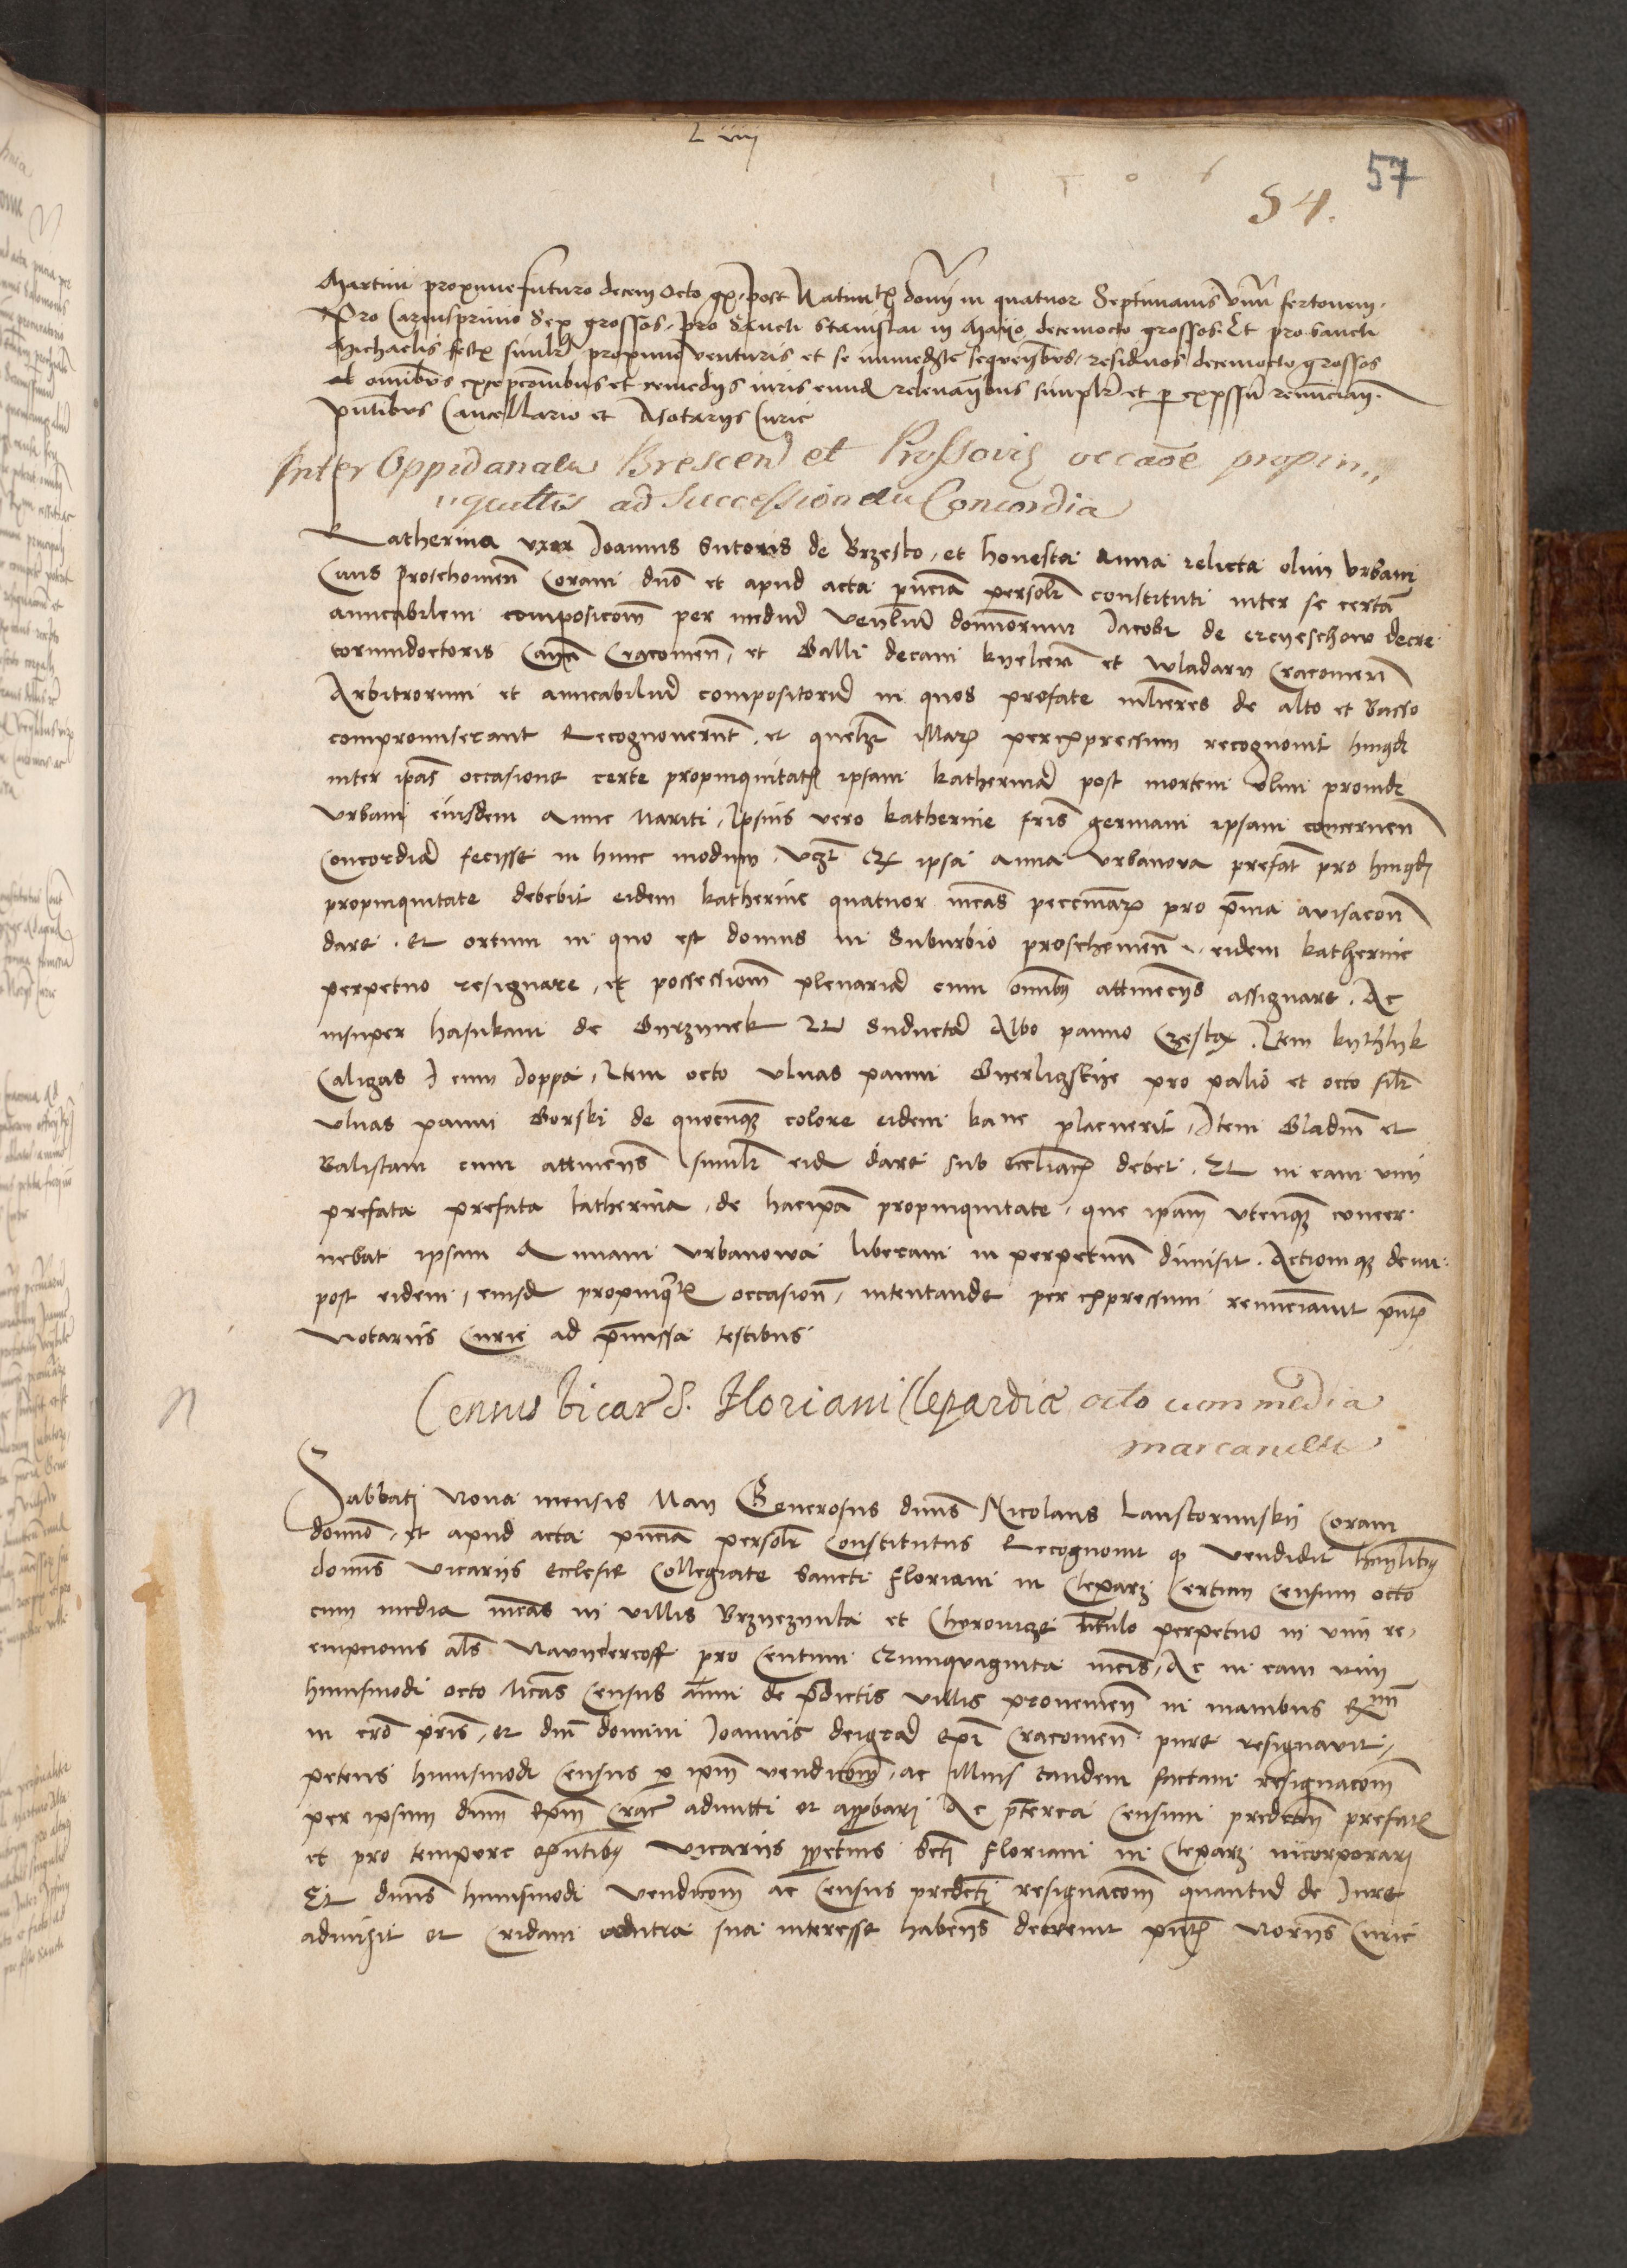 L iiij
1506
57
54.
Martini proxime futuro decem Octo gr. post Natiuitatis domini in quatuor Septimanis vnum fertonem.
Pro Carnisprimo Sex grossos. pro Sancti Stanislai in Mayo decemocto grossos. Et pro Sancti
Michaelis festis similiter proxime venturis et se immediate sequentibus, residuos decemocto grossos
omnibus exceptionibus et remedijs iuris releuantibus simpliciter et per expressum
pntibus Cancellario et Notarijs Curie
Inter Oppidanam Brescen et Prossovien occaõe propin„
„quitatis ad Successionem Concordia
Katherina vxor Joannis Sutoris de Brzesko, et honesta Anna relicta olim Vrbani
Ciuis proschouien Coram dno et apud acta pncia personlr constituti inter se certam
amicabilem composicoem per medium Venlium dominorum Jacobi de decre
torumdoctoris Canci Cracouien, et Galli decani kyelcen et Wladarij Cracouien
Arbitrorum et amicabilium compositorum in quos prefate mlieres de alto et Basso
compromiserant Recognouerunt, et quelibet illarum per expressum recognouit huiusmodi
inter ipas occasione certe propinquitatis ipsam katherinam post mortem olim prouidi
Vrbani eiusdem Anne Mariti, Ipsius vero katherine fris germani ipsam concernen
Concordiam fecisse in hunc modum. Vzt Q ipsa Anna Vrbanova prefat pro huiusmodi
propinquitate debebit eidem katherine quatuor mcas peccuniarum pro prima
dare. Et ortum in quo est domus in Suburbio proschouien eidem katherine
perpetuo resignare, et possessionem plenariam cum omnibus attinencijs assignare. Ac
insuper hasukam de Subductam Albo panno Item
Caligas cum Joppa, Item octo Vlnas panni pro palio et octo silr
vlnas panni Gorski de quocunque colore eidem placuerit, Item Gladium et
Balistam cum attinens similr eid dare sub debet. Et in eam vim
prefata prefata katherina, de propinquitate, que ipam vtcunque concer
nebat ipsam Annam Vrbanowa liberam in perpetuum dimisit. Actionique de
post eidem, eiusdem propinquitatis occasione, intentande per expressum renunciauit pntibus
Notarijs Curie ad premissa testibus
Census Vicar S. Floriani Clepardiæ octo cum media
marcarum
Sabbati Nona mensis Maij Generosus dnus Nicolaus Lanscorunskij Coram
domino, et apud acta pncia personlr Constitutus Recognouit q vendidit
domis Vicarijs Ecclesie Collegiate Sancti Floriani in Cleparz Certum Censum octo
cum media mcas in villis et titulo perpetuo in vim re
empcionis als Nawyderkoff pro Centum Quinquaginta mcis, Ac in eam vim
huiusmodi octo Mcas Census annui de predictis villis prouenien in manibus
in cro pris, et dni domini Joannis deigra epi Cracouien pure resignauit,
petens huiusmodi Census p ipm vendicoem, ac illius tandem factam resignacoem
per ipsum dnum Epm Crac admitti et approbari Ac preterea Censum predictum prefatis
et pro tempore exntibus Vicariis perpetuis Scti Floriani in Cleparz incorporari
Et dnus huiusmodi Vendicoem ac Census predicti resignacoem quantum de Jure
admisit et Cridam contra sua interesse habens decreuit pntibus Norijs Curie
N